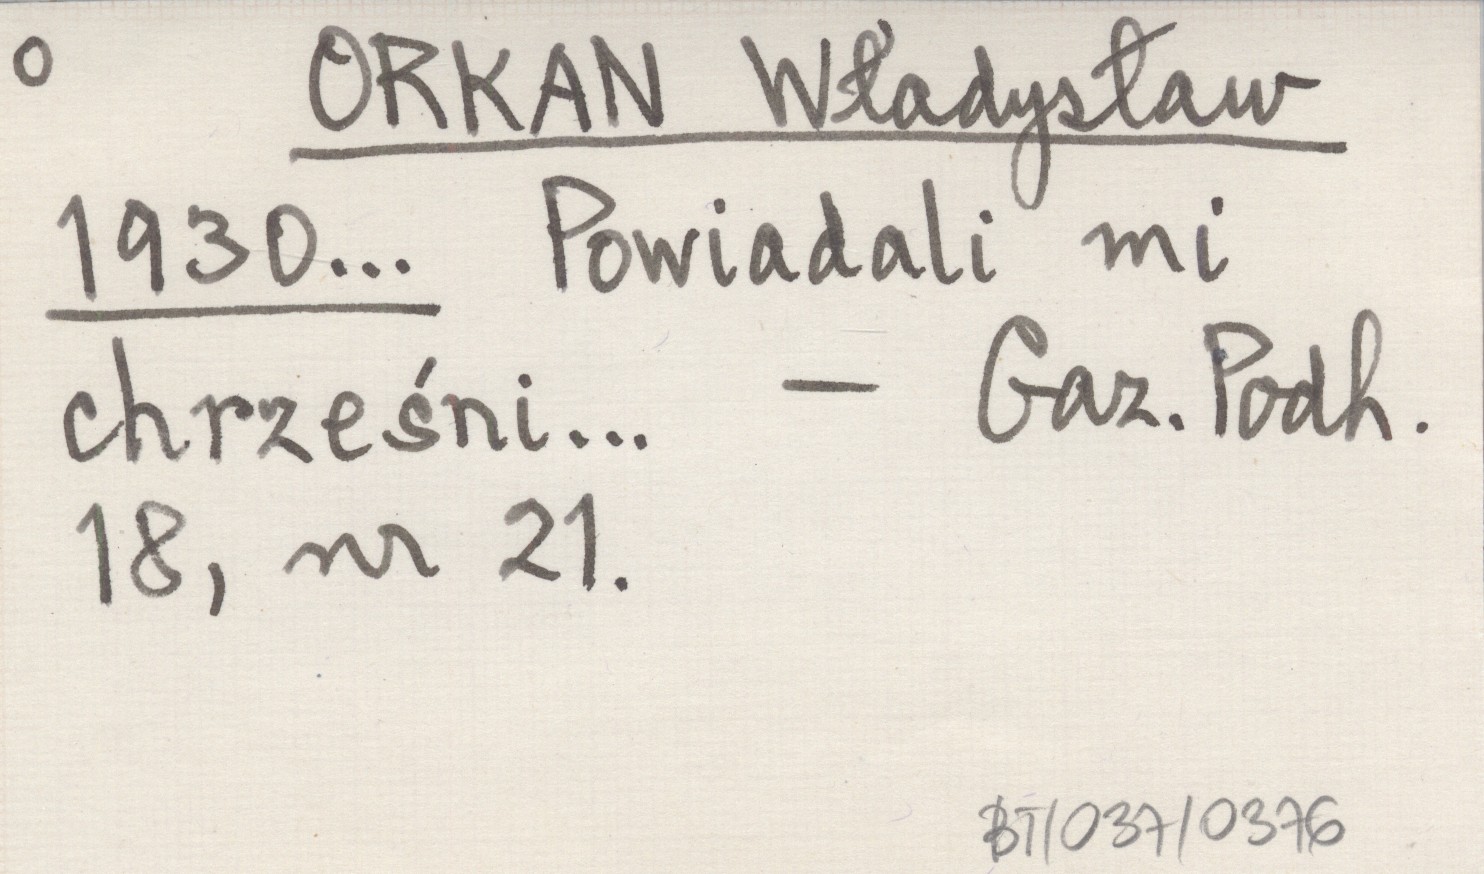 O
ORKAN Władysław
1930... Powiadali mi
chrześni... — Gaz. Podh.
18, nr 21.
BT/037/0376